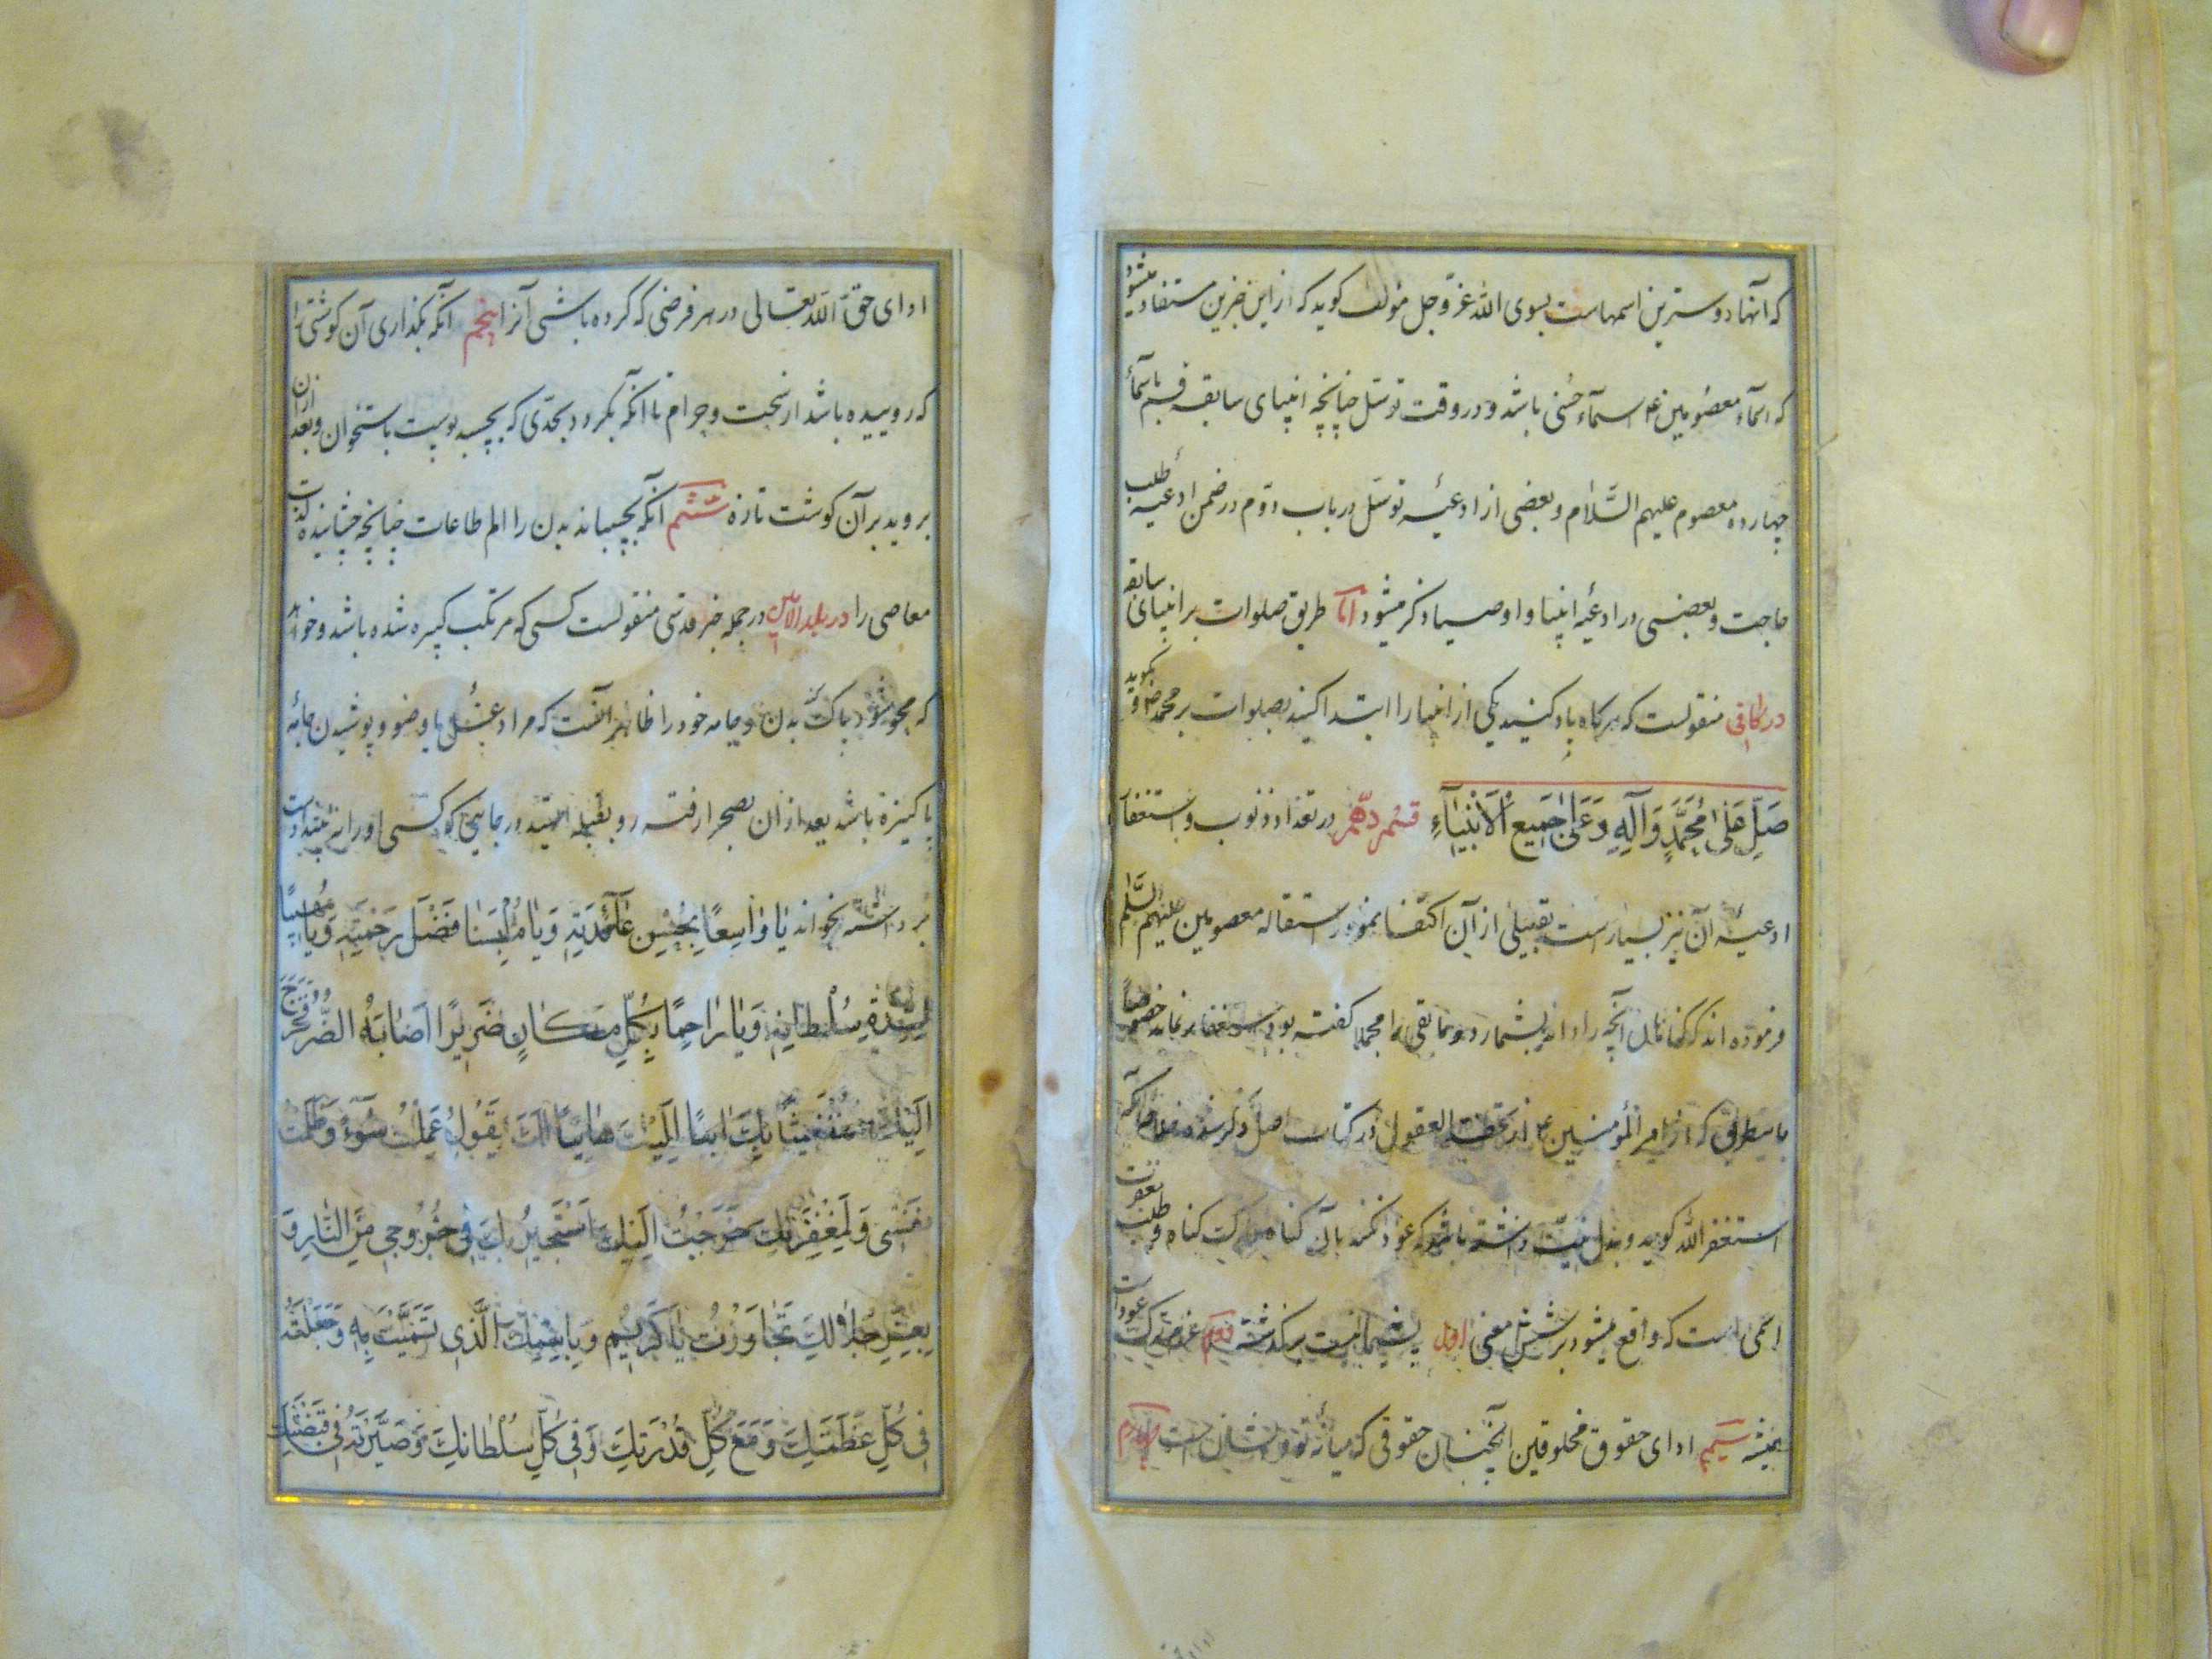 که آنها دوسترین اسمهاست بسوی الله عزّ و جل مؤلف کوید که از این خبرین مستفاد میشود
که اسمآء معصومین ع اسمآء حُسنی باشد و در وقت توسّل چنانچه انبیای سابقه باسمآء
چهارده معصوم علیهم السَّلام و بعضی از ادعیهٔ توسّل در باب دوّم در ضمن ادعیهٔ طلب
حاجت و بعضی در ادعیهٔ انبیا و اوصیا ذکر میشود امّا طریق صلوات بر انبیای سابقه
در کافی منقولست که هرکاه یاد کنید یکی از انبیا را ابتدا کنید بصلوات بر محمد و بکوید
صَلِّ عَلیٰ مُحَمَّدٍ وَآلِهِ وَعَلیٰ جَمِیعِ الْاَنْبِیٰآءِ قسم دهم در تعداد ذنوب و استغفار
ادعیهٔ آن نیز بسیار است بقلیلی از آن اکتفا نمود در استقاله معصومین علیهم السَّلٰم
فرموده اند که کناهان آنچه را داند بشمارد و مابقی را مجملا کفته توبه و استغفار نماید خصوصاً
باینطریق که از امیر المؤمنین ع در تحف العقول در کتاب اصل ذکر شده آنکه
استغفر الله کوید و بدل نیّت داشته باشد که عود نکند بآن کناه و طلب مغفرت
اسمی است که واقع میشود بر شش معنی اوّل پشیمانیست بر کذشته دویم عزم ترک عودات
همیشه سیّم ادای حقوق مخلوقین آنچنان حقوقی که میانه تو و ایشان است چهارم
ادای حقّ الله تعالی در هر فرضی که کرده باشی آنرا پنجم آنکه بکذاری آن کوشتی را
که روییده باشد از سحت و حرام تا آنکه بکردد بحدّی که بچسبد پوست باستخوان و بعد ازان
بروید بر آن کوشت تازه ششم آنکه بچسبانه بدن را الم طاعات چنانچه چشانیده لذت
معاصی را در بلد الامین در جمله خبر قدسی منقولست کسی که مرتکب کبیره شده باشد و خواهد
که محو شود پاک کند بدن و جامه خود را ظاهر آنست که مراد غسُل یا وضو و پوشیدن جامهٔ
پاکیزه باشد بعد از آن بصحرا رفته رو بقبله ایستد در جایی که کسی او را نبیند و دست
برداشته بخواند یٰا وٰاسِعًا بِحُسْنِ عٰآئِدَتِهِ وَیٰا مُلْبِسَنٰا فَضْلَ رَحْمَتِهِ وَیٰا مُهٖیبًا
لِشِدَّةِ سُلْطٰانِهِ وَیٰا رٰاحِمًا بِکُلِّ مَکٰانٍ ضَرِیرًا اَصٰابَهُ الضُّرُّ فَخَرَجَ
اِلَیْکَ مُسْتَغِیثًا بِکَ اٰیِبًا اِلَیْکَ هٰایِبًا لَکَ یَقُولُ عَمِلْتُ سُوٓءً وَظَلَمْتُ
نَفْسٖی وَلِمَغْفِرَتِکَ خَرَجْتُ اِلَیْکَ اَسْتَجٖیرُ بِکَ فٖی خُرُوجٖی مِنَ النّٰارِ وَ
بِعِزِّ جَلٰالِکَ تَجٰاوَزْتُ یٰا کَرٖیمُ وَبِاسْمِکَ الَّذٖی تَسَمَّیْتَ بِهِ وَجَعَلْتَهُ
فٖی کُلِّ عَظَمَتِکَ وَمَعَ کُلِّ قُدْرَتِکَ وَفٖی کُلِّ سُلْطٰانِکَ وَصَیَّرْتَهُ فٖی قَبْضَتِکَ